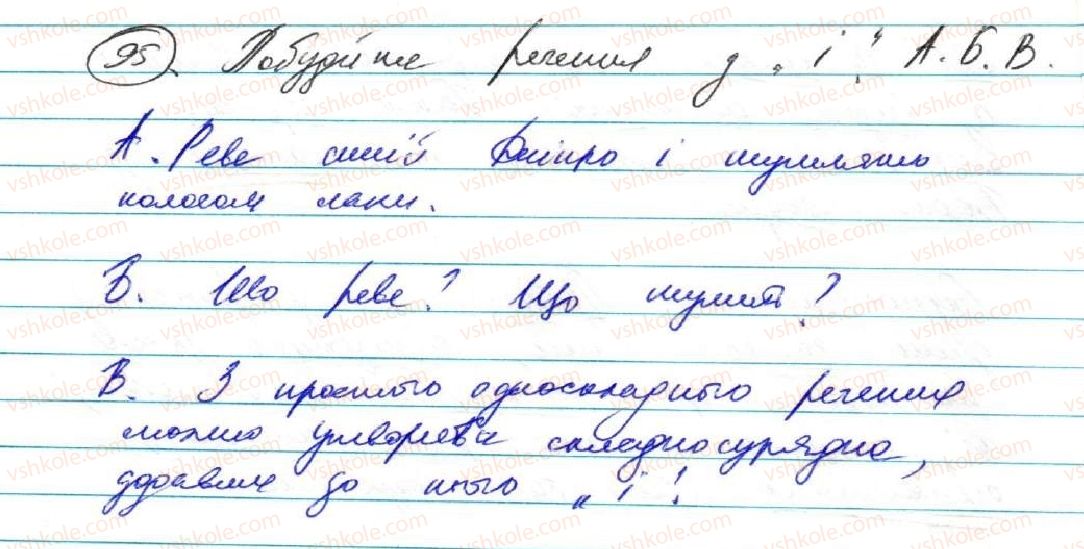 95. Побудуйте речення з „і“ А.Б.В.
А. Реве синій Дніпро і шумлять
колосом лани.
Б. Що реве? Що шумить?
В. З простого односкладного речення
можно утворити складносурядне,
додавши до нього „і“.